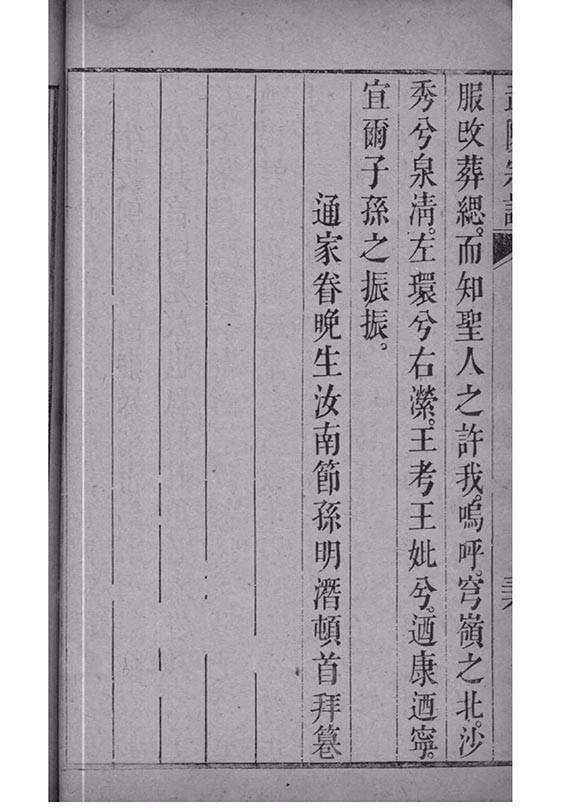 服改葬緦。而知聖人之許我。嗚呼。穹嶺之北。沙
秀兮泉清。左環兮右瀠。王考王妣兮。迺康迺寧。
宜爾子孫之振振。
通家眷晚生汝南節孫明潛頓首拜篹